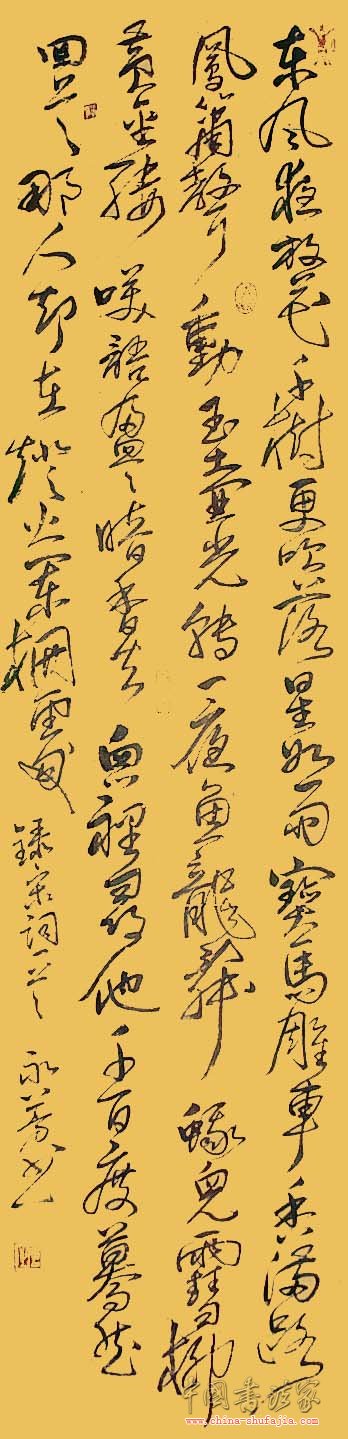 东风夜放花千樹更吹落星如雨寶馬雕車香滿路
鳳簫聲動玉壺光轉一夜魚龍舞蛾兒雪柳
黃金縷咲語盈〻暗香去眾裡尋他千百度驀然
回首那人却在燈火闌珊處
録宋詞一首
永 书
中国书法家
www.china-shufajia.com